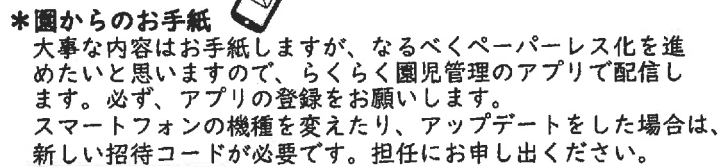 ＊園からのお手紙
大事な内容はお手紙しますが、なるべくペーパーレス化を進
めたいと思いますので、らくらく園児管理のアプリで配信し
ます。必ず、アプリの登録をお願いします。
スマートフォンの機種を変えたり、アップデートをした場合は、
新しい招待コードが必要です。担任にお申し出ください。